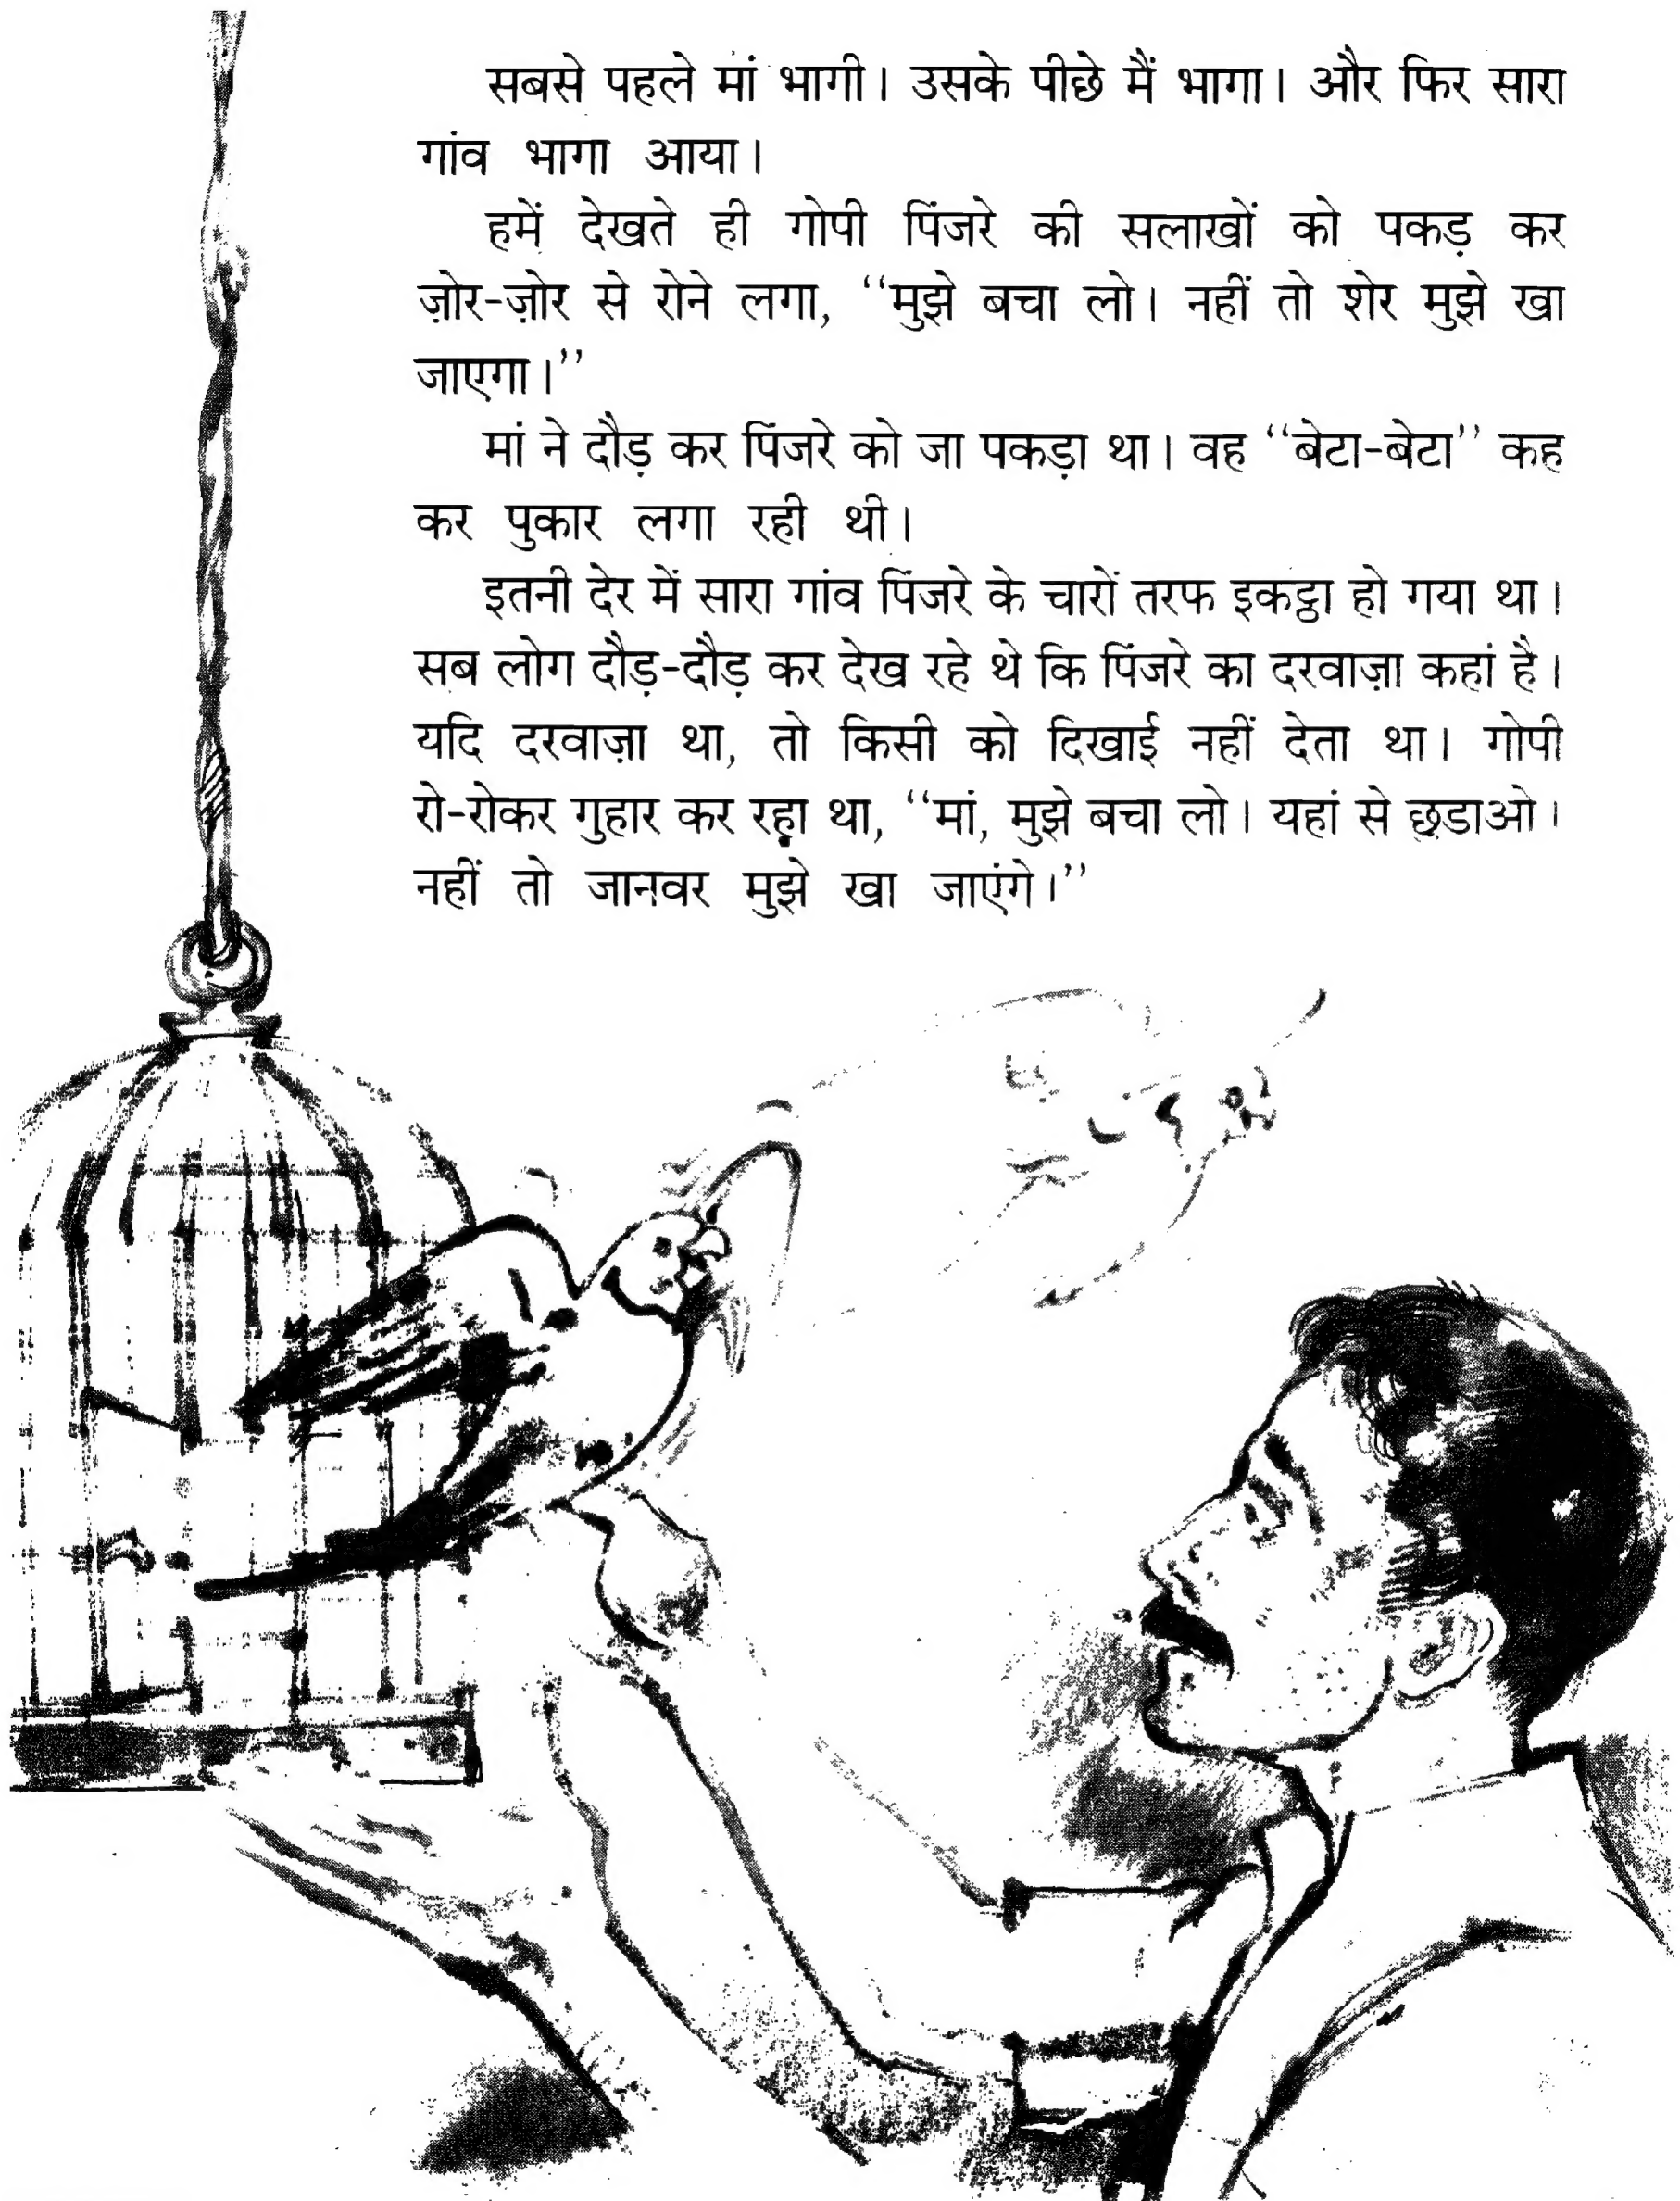 सबसे पहले मां भागी। उसके पीछे मैं भागा। और फिर सारा
गांव भागा आया।
हमें देखते ही गोपी पिंजरे की सलाखों को पकड़ कर
ज़ोर-ज़ोर से रोने लगा, ‘‘मुझे बचा लो। नहीं तो शेर मुझे खा
जाएगा।’’
मां ने दौड़ कर पिंजरे को जा पकड़ा था। वह ‘‘बेटा-बेटा’’ कह
कर पुकार लगा रही थी।
इतनी देर में सारा गांव पिंजरे के चारों तरफ इकट्ठा हो गया था।
सब लोग दौड़-दौड़ कर देख रहे थे कि पिंजरे का दरवाज़ा कहां है।
यदि दरवाज़ा था, तो किसी को दिखाई नहीं देता था। गोपी
रो-रोकर गुहार कर रहा था, ‘‘मां, मुझे बचा लो। यहां से छुडाओ।
नहीं तो जानवर मुझे खा जाएंगे।’’